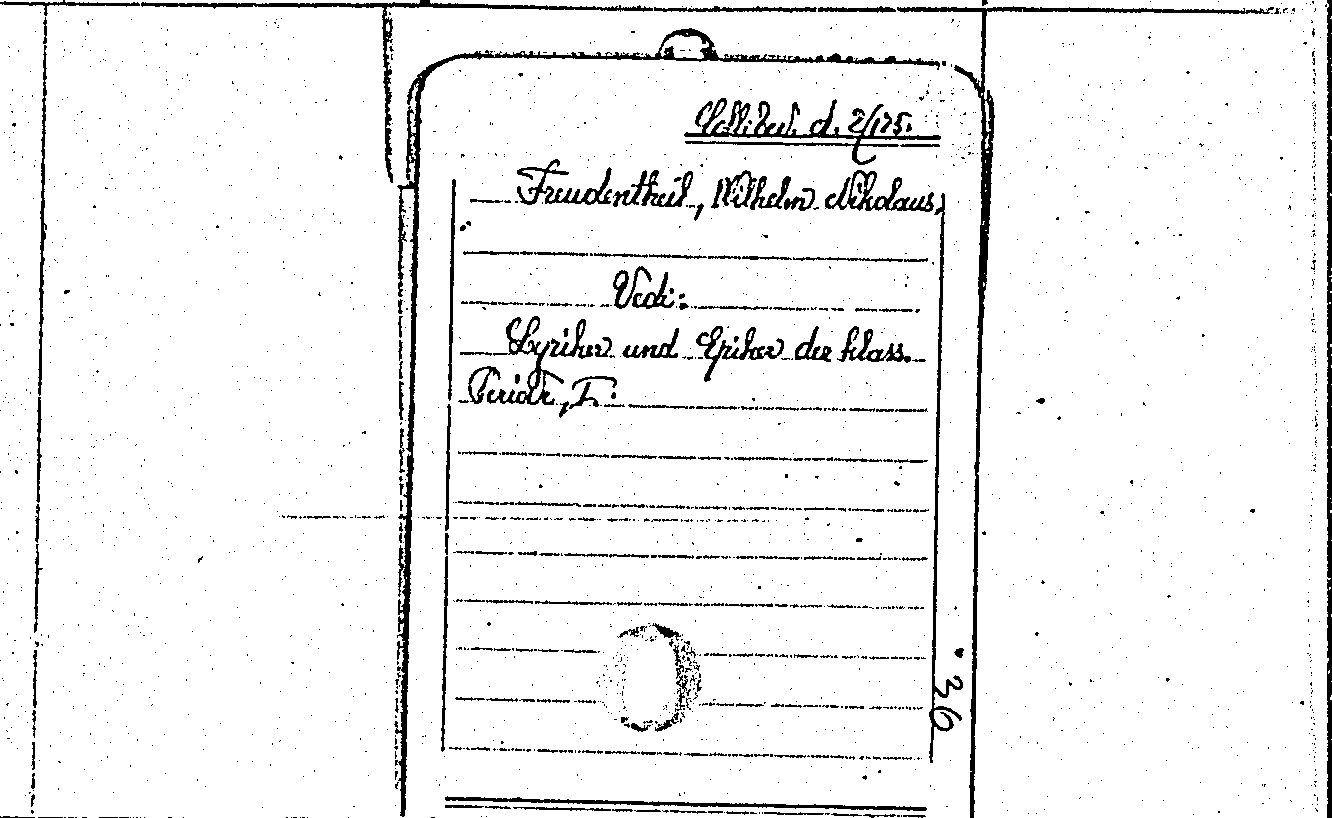 Collident. d. 2/175.
Freudentheil, Wilhelm Nikolaus.
Vedi:
Lyriker und Epiker der klass.
Periode, I.
36